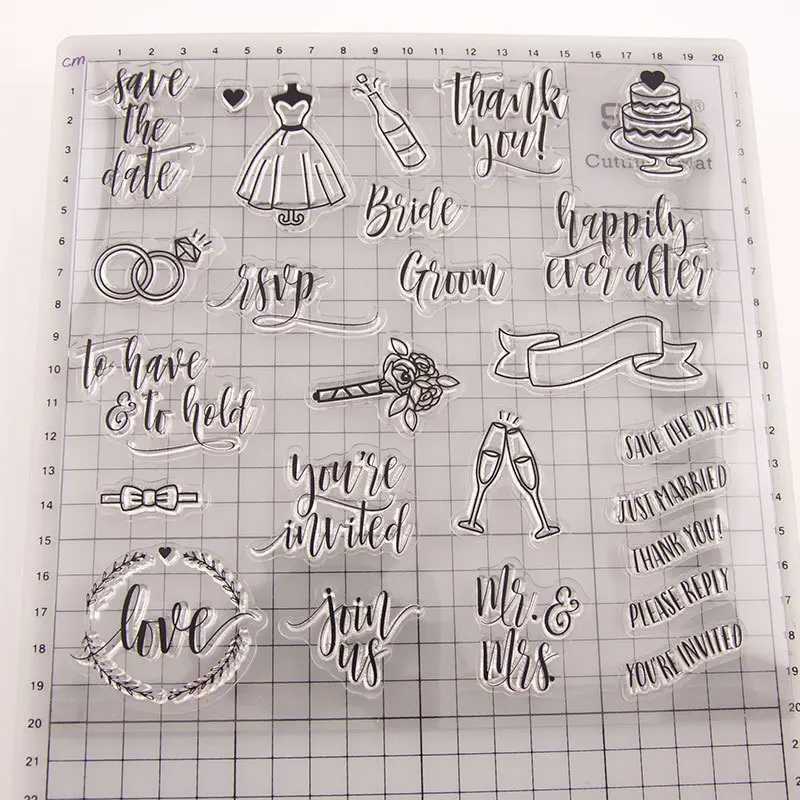 cm
1 2 3 4 5 6 7 8 9 10 11 12 13 14 15 16 17 18 19 20
1
2
3
4
5
6
7
8
9
10
11
12
13
14
15
16
17
18
19
20
21
22
save
the
date
thank
you!
®
Mat
Bride
happily
ever after
rsvp
Groom
to have
& to hold
SAVE THE DATE
JUST MARRIED
THANK YOU!
PLEASE REPLY
YOU'RE INVITED
you're
invited
love
join
us
Mr. &
Mrs.